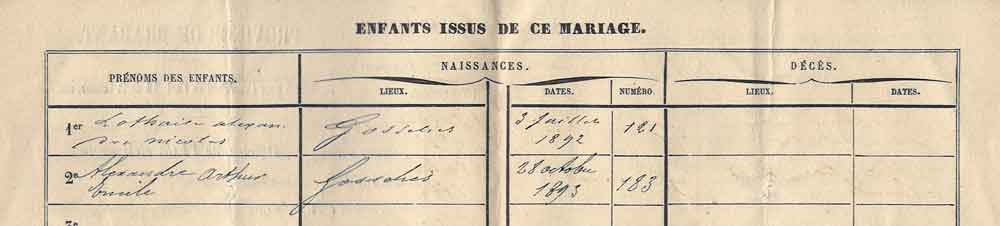 ENFANTS ISSUS DE CE MARIAGE.
PRÉNOMS DES ENFANTS.
NAISSANCES.
DÉCÈS.
LIEUX.
DATES.
NUMÉRO.
LIEUX.
DATES.
1er
Lothaire alexan
dre nicolas
Gosselies
3 Juillet
1892
121
2e
Alexandre Arthur
Emile
Gosselies
28 octobre
1893
183
3e